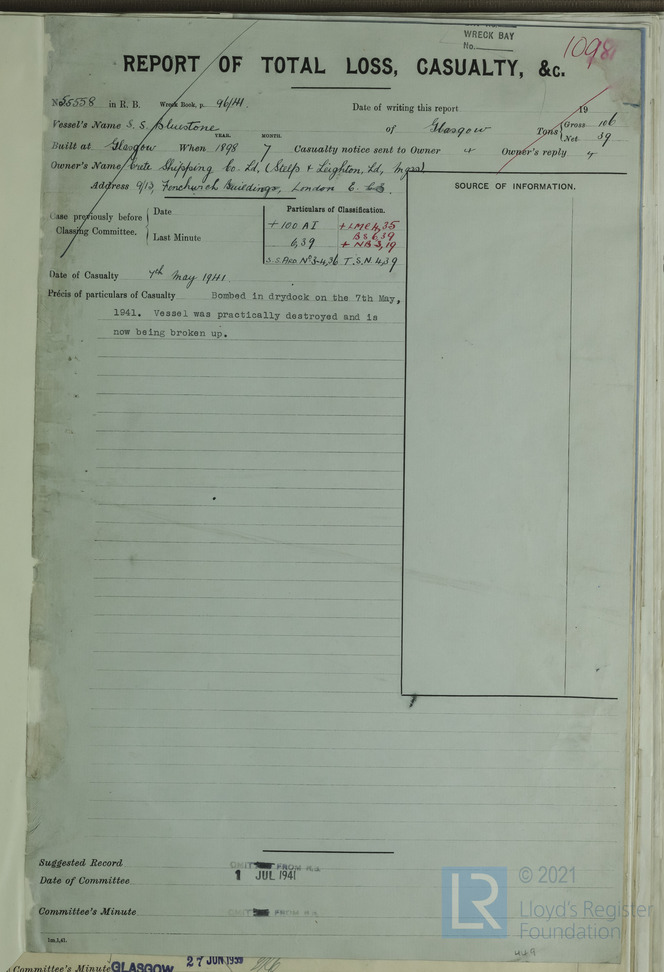 WRECK BAY
No.
1098
REPORT OF TOTAL LOSS, CASUALTY, &c.
No. 55558 in R. B. Wreck Book, p. 96/41. Date of writing this report 19
Vessel's Name S. S. Bluestone of Glasgow Tons Gross 106
Net 39
YEAR. MONTH.
Built at Glasgow When 1898 7 Casualty notice sent to Owner Owner's reply
Owner's Name Shipping Co. Ld. & Leighton, Ld, Mgrs)
Address 9/13, Fenchurch Buildings, London E.
SOURCE OF INFORMATION.
Case previously before Classing Committee. Date
Last Minute
Particulars of Classification.
+ 100 A I + LMC 4,35
BS 6,39
6,39 + NB 3,19
S.S. No 3-4,36 T.S.N 4,39
Date of Casualty 7th May 1941.
Précis of particulars of Casualty Bombed in drydock on the 7th May,
1941. Vessel was practically destroyed and is
now being broken up.
Suggested Record
FROM R.B.
Date of Committee 1 JUL 1941
Committee's Minute FROM R.B.
1m.1,41.
© 2021
LR
Lloyd's Register
Foundation
449
Committee's Minute GLASGOW 27 JUN 1939